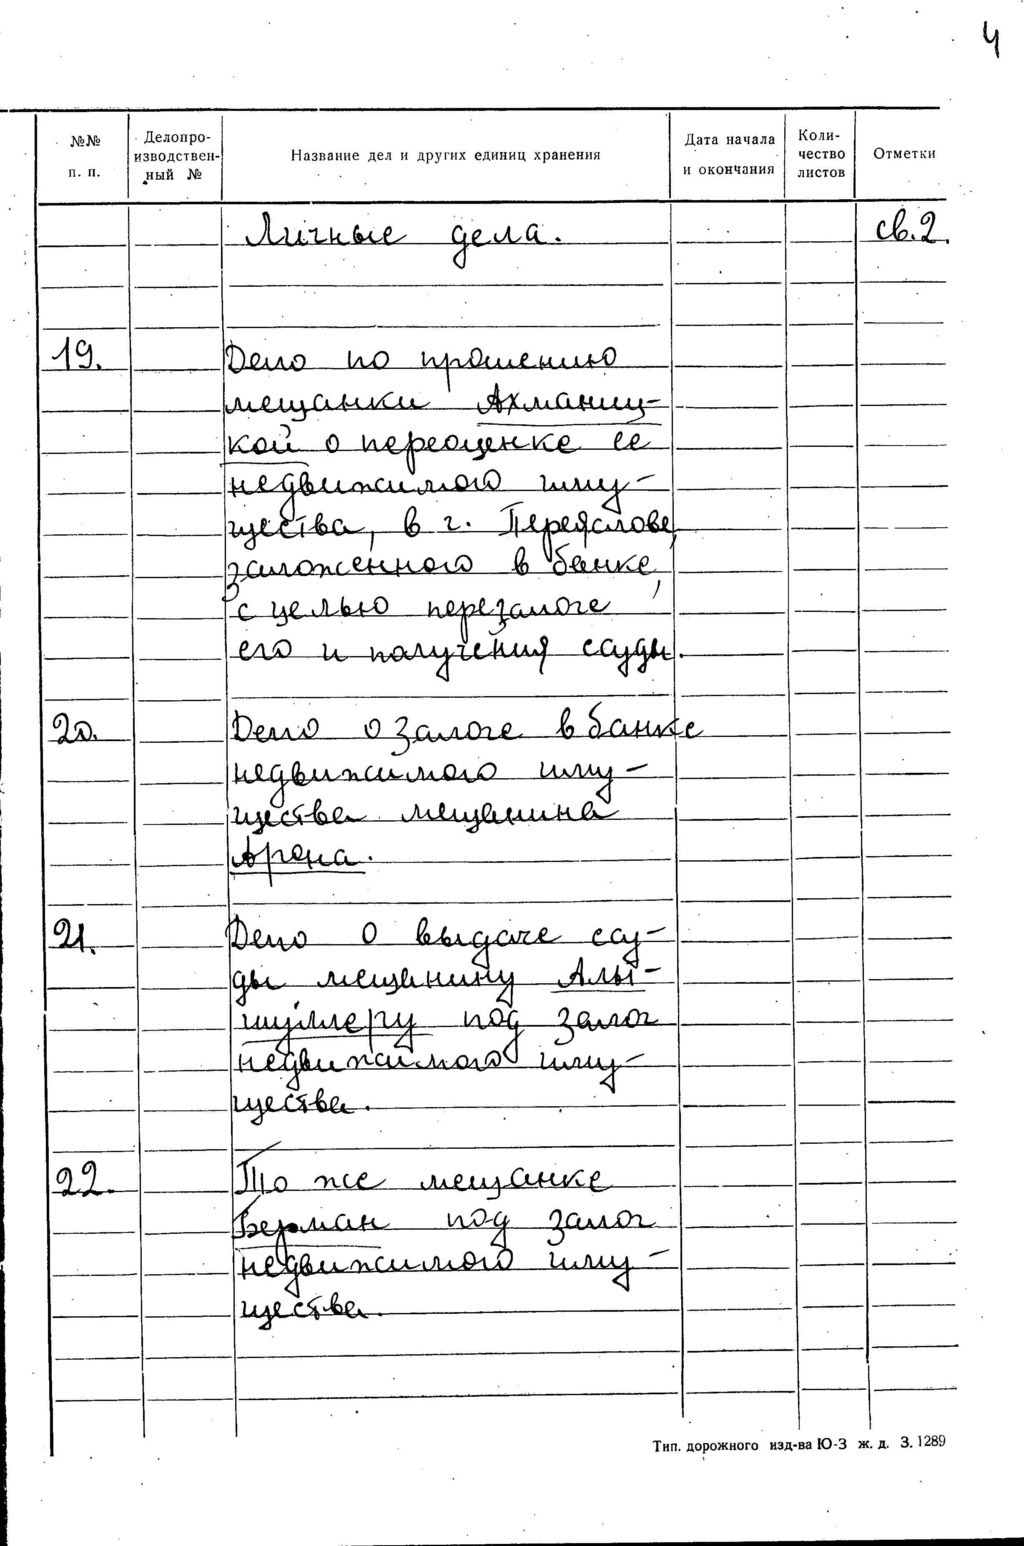 4
№№ п. п. Делопро-изводствен-ный № Название дел и других единиц хранения Дата начала и окончания Коли-чество листов Отметки
Личные дела. св. 2.
19. Дело по прошению
мещанки Ахманиц-
кой о переоценке ее
недвижимого иму-
щества, в г. Переяслове,
заложенного в банке,
с целью перезалоге
его и получения ссуды.
20. Дело о залоге в банке
недвижимого иму-
щества мещанина
Арона.
21. Дело о выдаче ссу-
ды мещанину Аль-
шуллеру под залог
недвижимого иму-
щества.
22. То же мещанке
Берман под залог
недвижимого иму-
щества.
Тип. дорожного изд-ва Ю-З ж. д. З. 1289